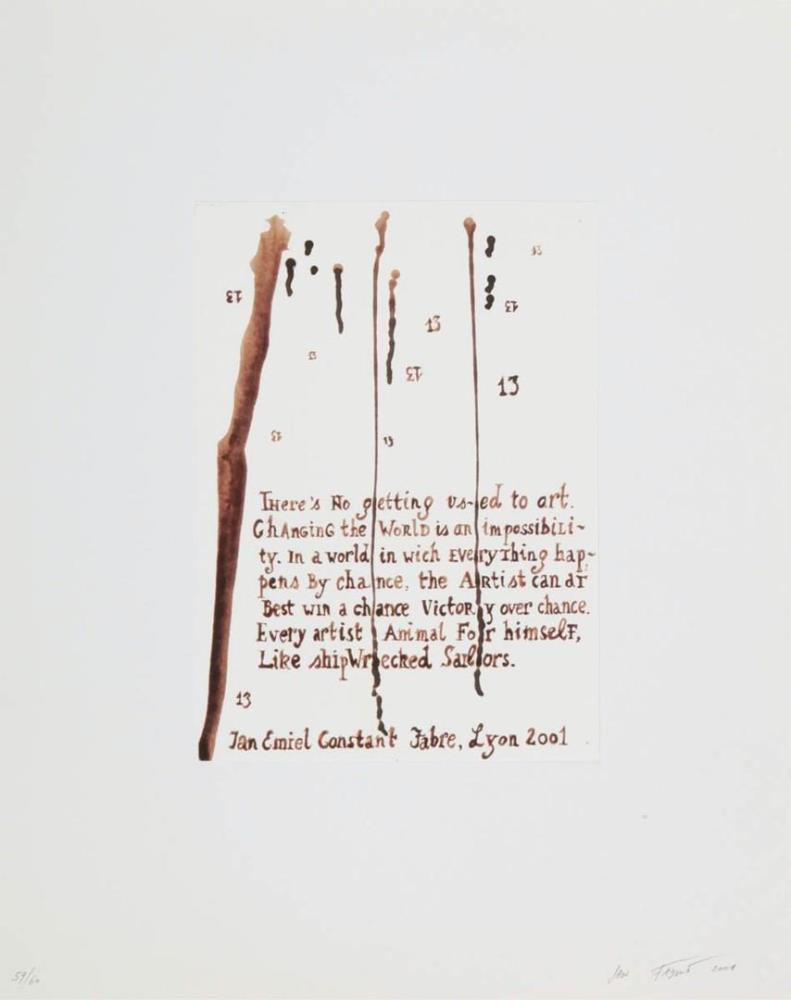 13
13
13
13
13
13
13
13
13
There's No getting us-ed to art.
ChAnginG the WORLD is an impossibili-
ty. In a world in wich EVErything hap-
pens By chance, the Artist can at
Best win a chance Victory over chance.
Every artist Animal For himself,
Like shipWrecked Sailors.
13
Jan Emiel Constant Fabre, Lyon 2001
59/60
Jan Fabre 2001